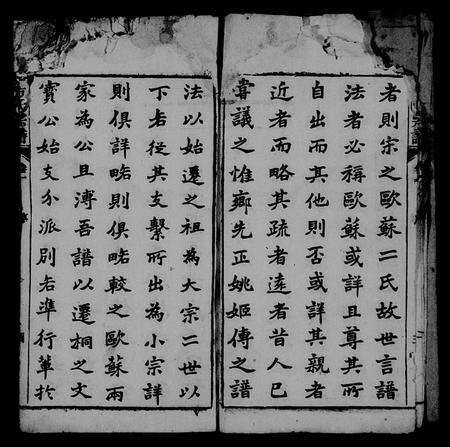 者則宗之歐蘇二氏故世言譜
法者必稱歐蘇或詳且尊其所
自出而其他則否或詳其親者
近者而略其疏者遠者昔人已
嘗議之惟鄉先正姚姬傳之譜
法以始遷之祖為大宗二世以
下各從其支繫所出為小宗詳
則俱詳畧則俱畧較之歐蘇兩
家為公且溥吾譜以遷桐之文
寶公始支分派別各準行輩於